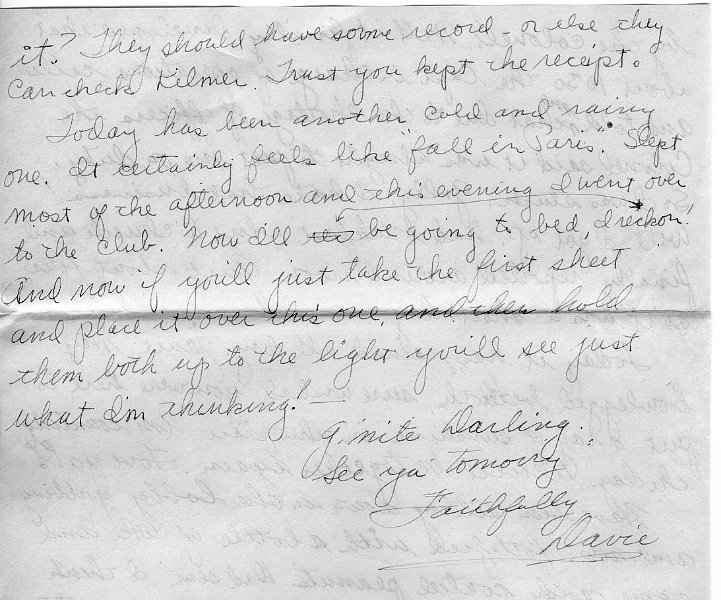 it? They should have some record or else they
can check Kilmer. Trust you kept the receipt.
Today has been another cold and rainy
one. It certainly feels like "fall in Paris". Slept
most of the afternoon and this evening I went over
to the club. Now I'll be going to bed, I reckon!
And now if you'll just take the first sheet
and place it over this one, and then hold
them both up to the light you'll see just
what I'm thinking! –
G'nite Darling.
See ya tomorry
Faithfully
Davie